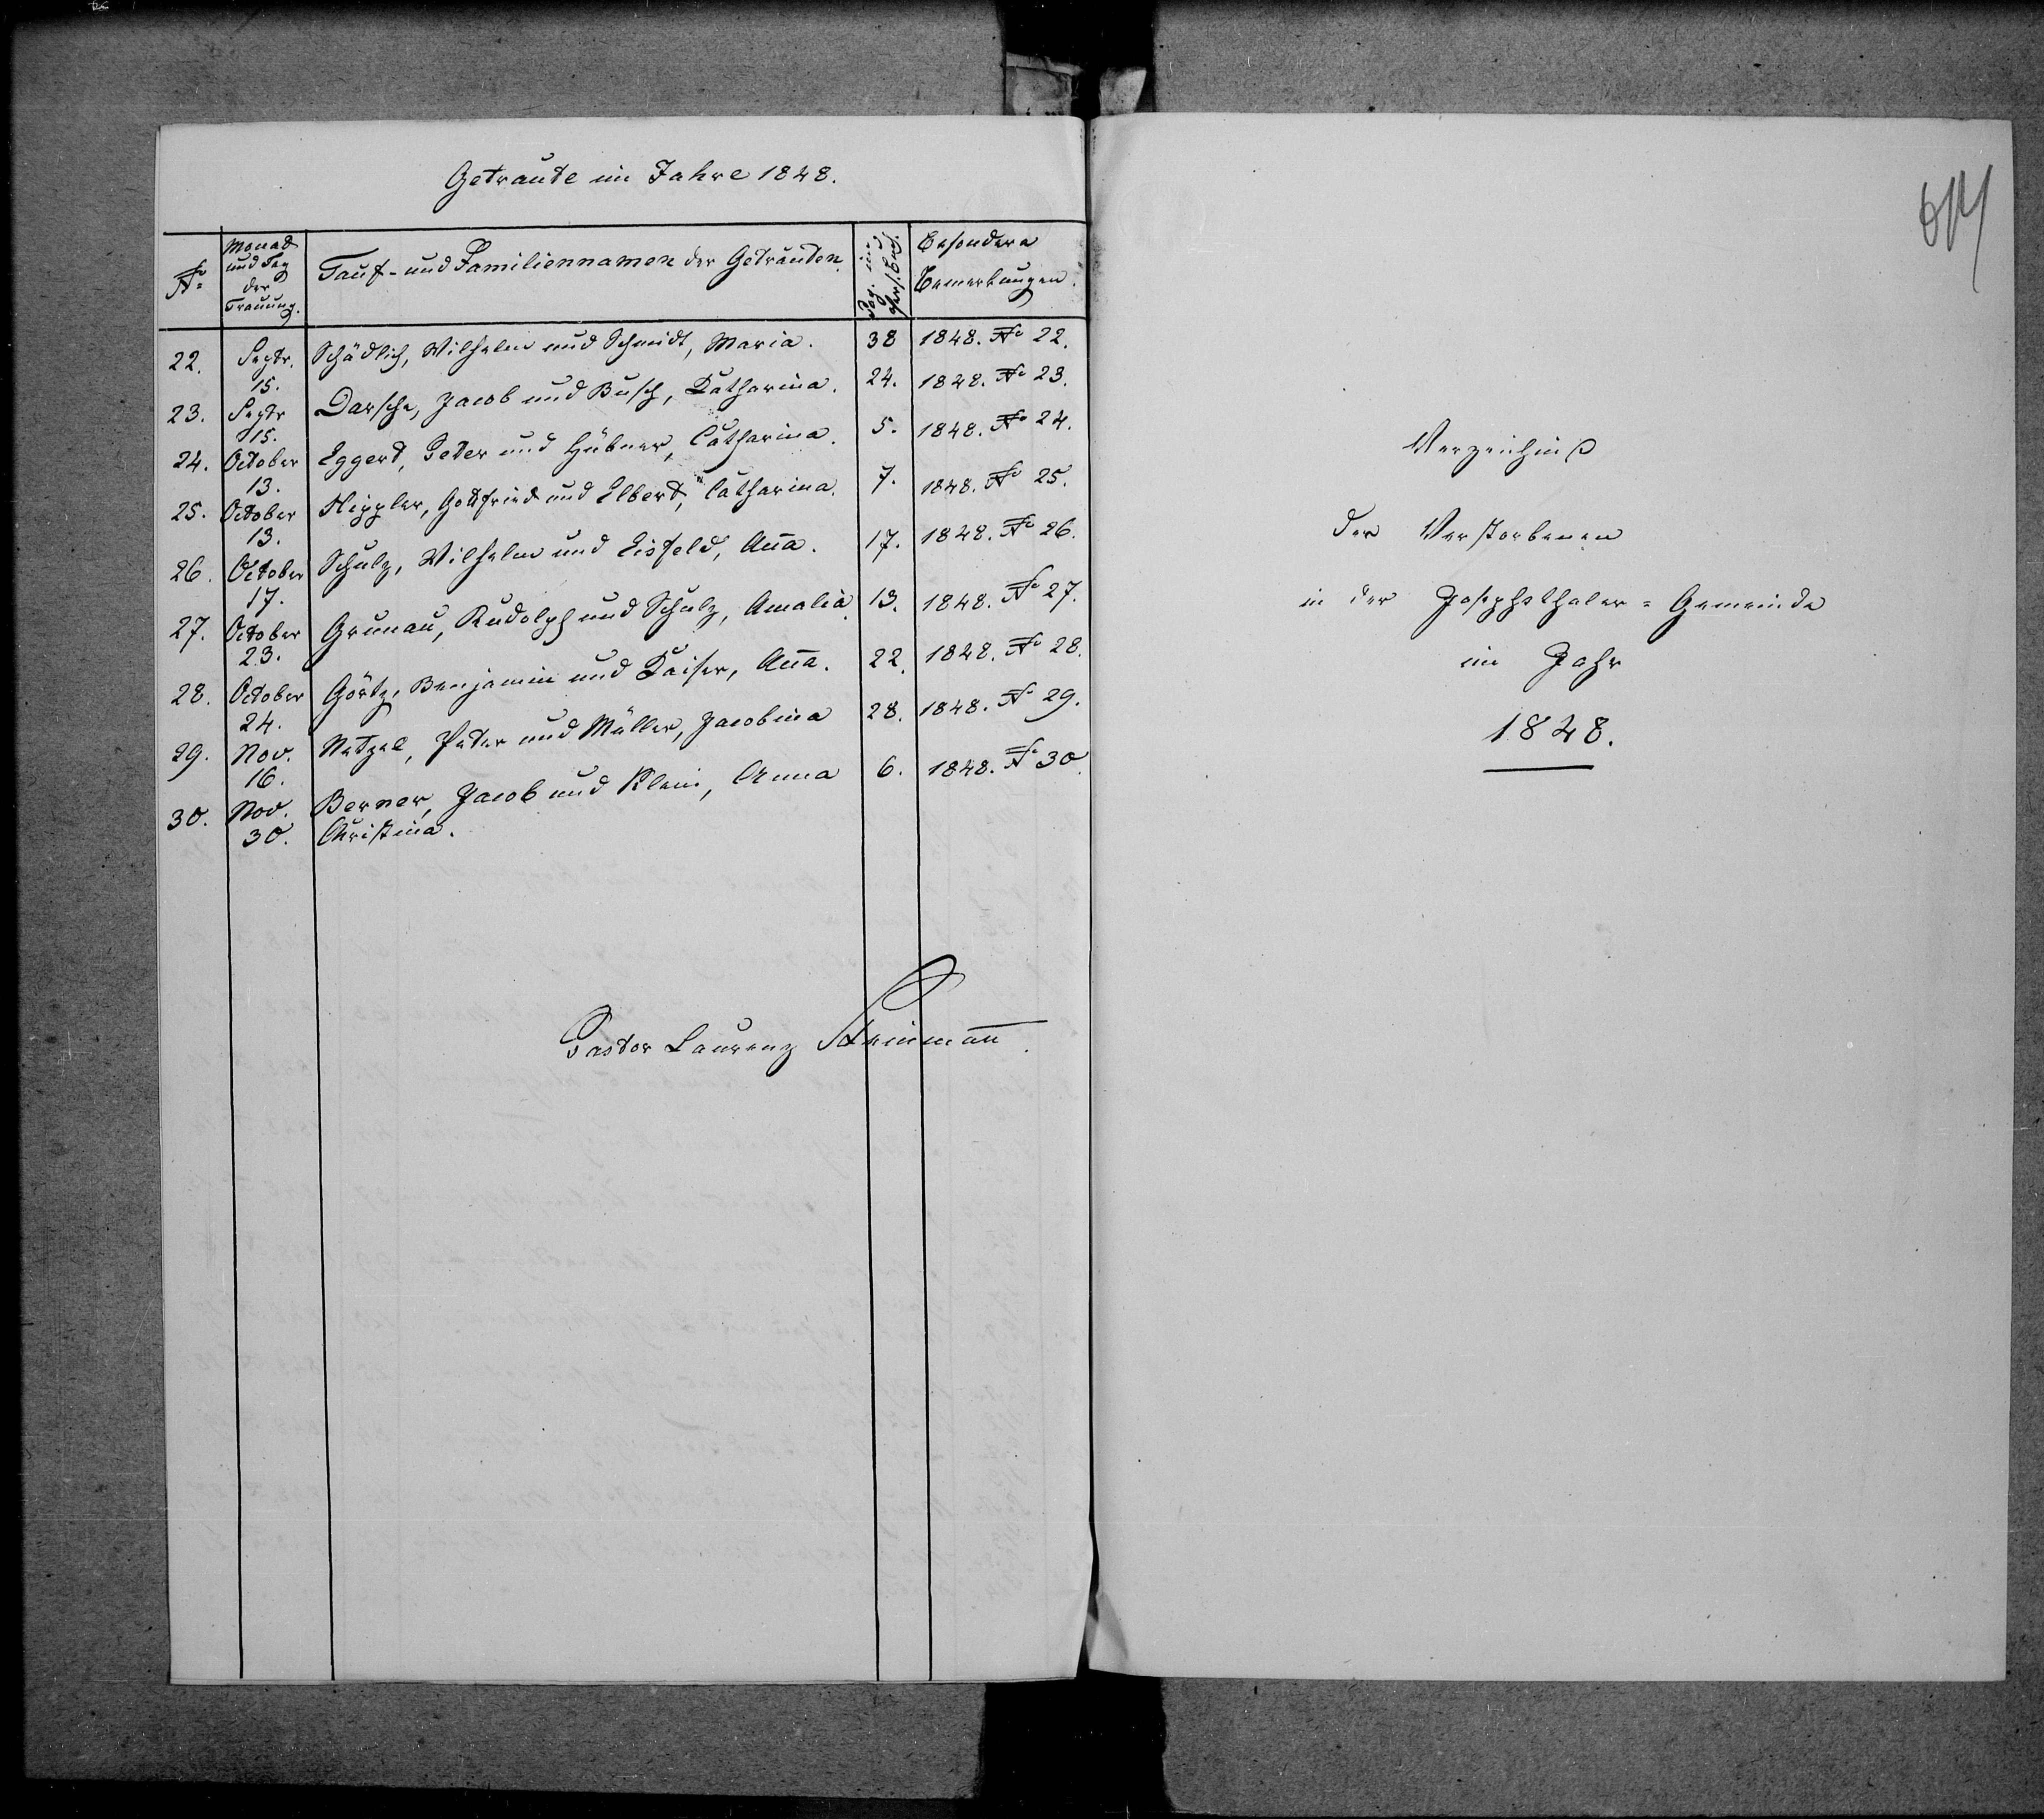 Getraute im Jahre 1848.
No
Monat und Tag der Trauung.
Tauf- und Familiennamen der Getrauten.
Pag. im Pers. Buch.
Besondere Bemerkungen.
22. Septr. 15. Schädlich, Wilhelm und Schmidt, Maria. 38 1848. No 22.
23. Septr 15. Darsche, Jacob und Busch, Katharina. 24. 1848. No 23.
24. October 13. Eggert, Peter und Hübner, Catharina. 5. 1848. No 24.
25. October 13. Hippler, Gottfried und Elbert, Catharina. 7. 1848. No 25.
26. October 17. Schulz, Wilhelm und Eisfeld, Ana. 17. 1848. No 26.
27. October 23. Grunau, Rudolph und Schulz, Amalia. 13. 1848. No 27.
28. October 24. Görtz, Benjamin und Kaiser, Ana. 22. 1848. No 28.
29. Nov. 16. Netzel, Peter und Müller, Jacobina 28. 1848. No 29.
30. Nov. 30. Berner, Jacob und Klein, Anna 6. 1848. No 30.
Christina.
Pastor Laurenz Steinman.
Verzeichniß
der Verstorbenen
in der Josephsthaler=Gemeinde
im Jahr
1848.